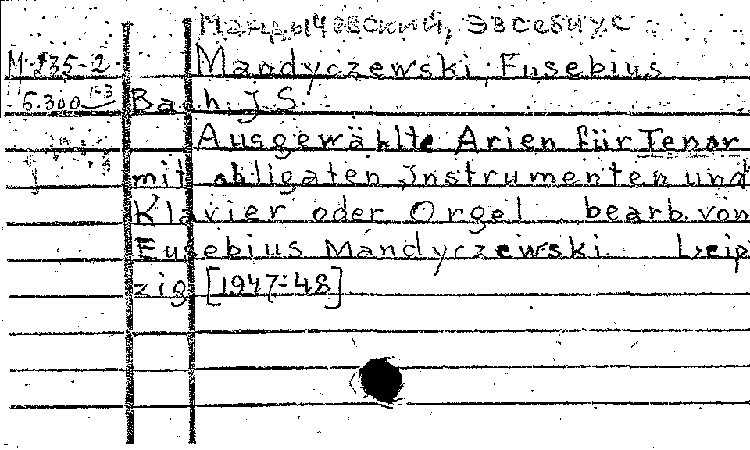 Мандычевский, Эвсебиус
М-235-2 Mandyczewski, Eusebius
5.300 1-3 Bach, J.S.
Ausgewählte Arien für Tenor
mit obligaten Instrumenten und
Klavier oder Orgel bearb. von
Eusebius Mandyczewski Leip
zig [1947-48]